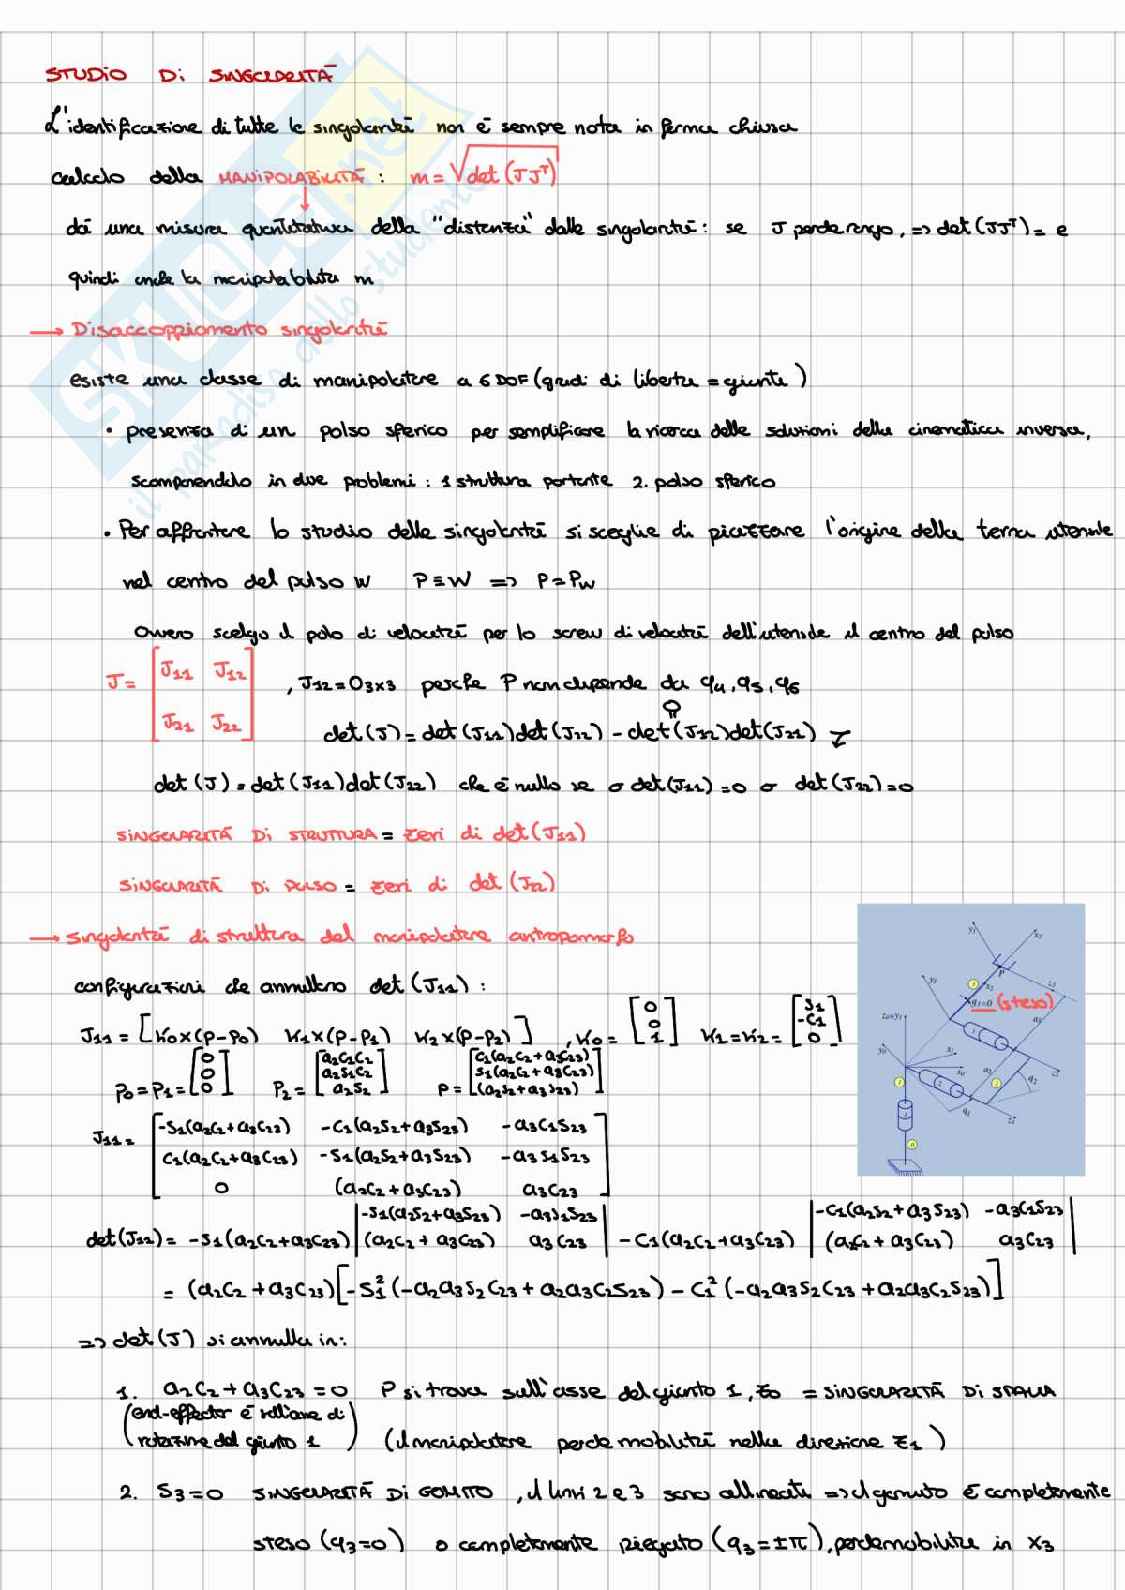 STUDIO DI SINGOLARITÀ
L'identificazione di tutte le singolarità non è sempre nota in forma chiusa
calcolo della MANIPOLABILITÀ : m = √det(JJᵀ)
dà una misura quantitativa della "distanza" dalle singolarità: se J perde rango, => det(JJᵀ) = 0
quindi anche la manipolabilità m
→ Disaccoppiamento singolarità
esiste una classe di manipolatore a 6 DOF (gradi di libertà = giunti)
• presenza di un polso sferico per semplificare la ricerca delle soluzioni della cinematica inversa,
scomponendolo in due problemi : 1 struttura portante 2. polso sferico
• Per affrontare lo studio delle singolarità si sceglie di piazzare l'origine della terna utensile
nel centro del polso W P ≡ W => P = Pw
Ovvero scelgo il polo di velocità per lo screw di velocità dell'utensile il centro del polso
J = [J11 J12 J21 J22] , J12 = 03x3 perché P non dipende da q4, q5, q6
det(J) = det(J11)det(J22) - det(J12)det(J21)
det(J) = det(J11)det(J22) che è nullo se o det(J11) = 0 o det(J22) = 0
SINGOLARITÀ DI STRUTTURA = zeri di det(J11)
SINGOLARITÀ DI POLSO = zeri di det(J22)
→ Singolarità di struttura del manipolatore antropomorfo
configurazioni che annullano det(J11) :
J11 = [K0×(P-P0) K1×(P-P1) K2×(P-P2)] , K0 = [0 0 1] K1 = K2 = [S1 -C1 0]
P0 = P1 = [0 0 0] P2 = [a2C1C2 a2S1C2 a2S2] P = [C1(a2C2+a3C23) S1(a2C2+a3C23) (a2S2+a3S23)]
q3=0 (steso)
J11 = [-S1(a2C2+a3C23) -C1(a2S2+a3S23) -a3C1S23
C1(a2C2+a3C23) -S1(a2S2+a3S23) -a3S1S23
0 (a2C2+a3C23) a3C23]
det(J11) = -S1(a2C2+a3C23) |-S1(a2S2+a3S23) -a3S1S23 (a2C2+a3C23) a3C23| - C1(a2C2+a3C23) |-C1(a2S2+a3S23) -a3C1S23 (a2C2+a3C23) a3C23|
= (a2C2+a3C23)[-S1²(-a2a3S2C23 + a2a3C2S23) - C1²(-a2a3S2C23 + a2a3C2S23)]
=> det(J) si annulla in:
1. a2C2 + a3C23 = 0 P si trova sull'asse del giunto 1, z0 = SINGOLARITÀ DI SPALLA
(end-effector è sull'asse di rotazione del giunto 1) (il manipolatore perde mobilità nella direzione z1)
2. S3 = 0 SINGOLARITÀ DI GOMITO , i link 2 e 3 sono allineati => il gomito è completamente
steso (q3 = 0) o completamente piegato (q3 = ±π), perde mobilità in x3